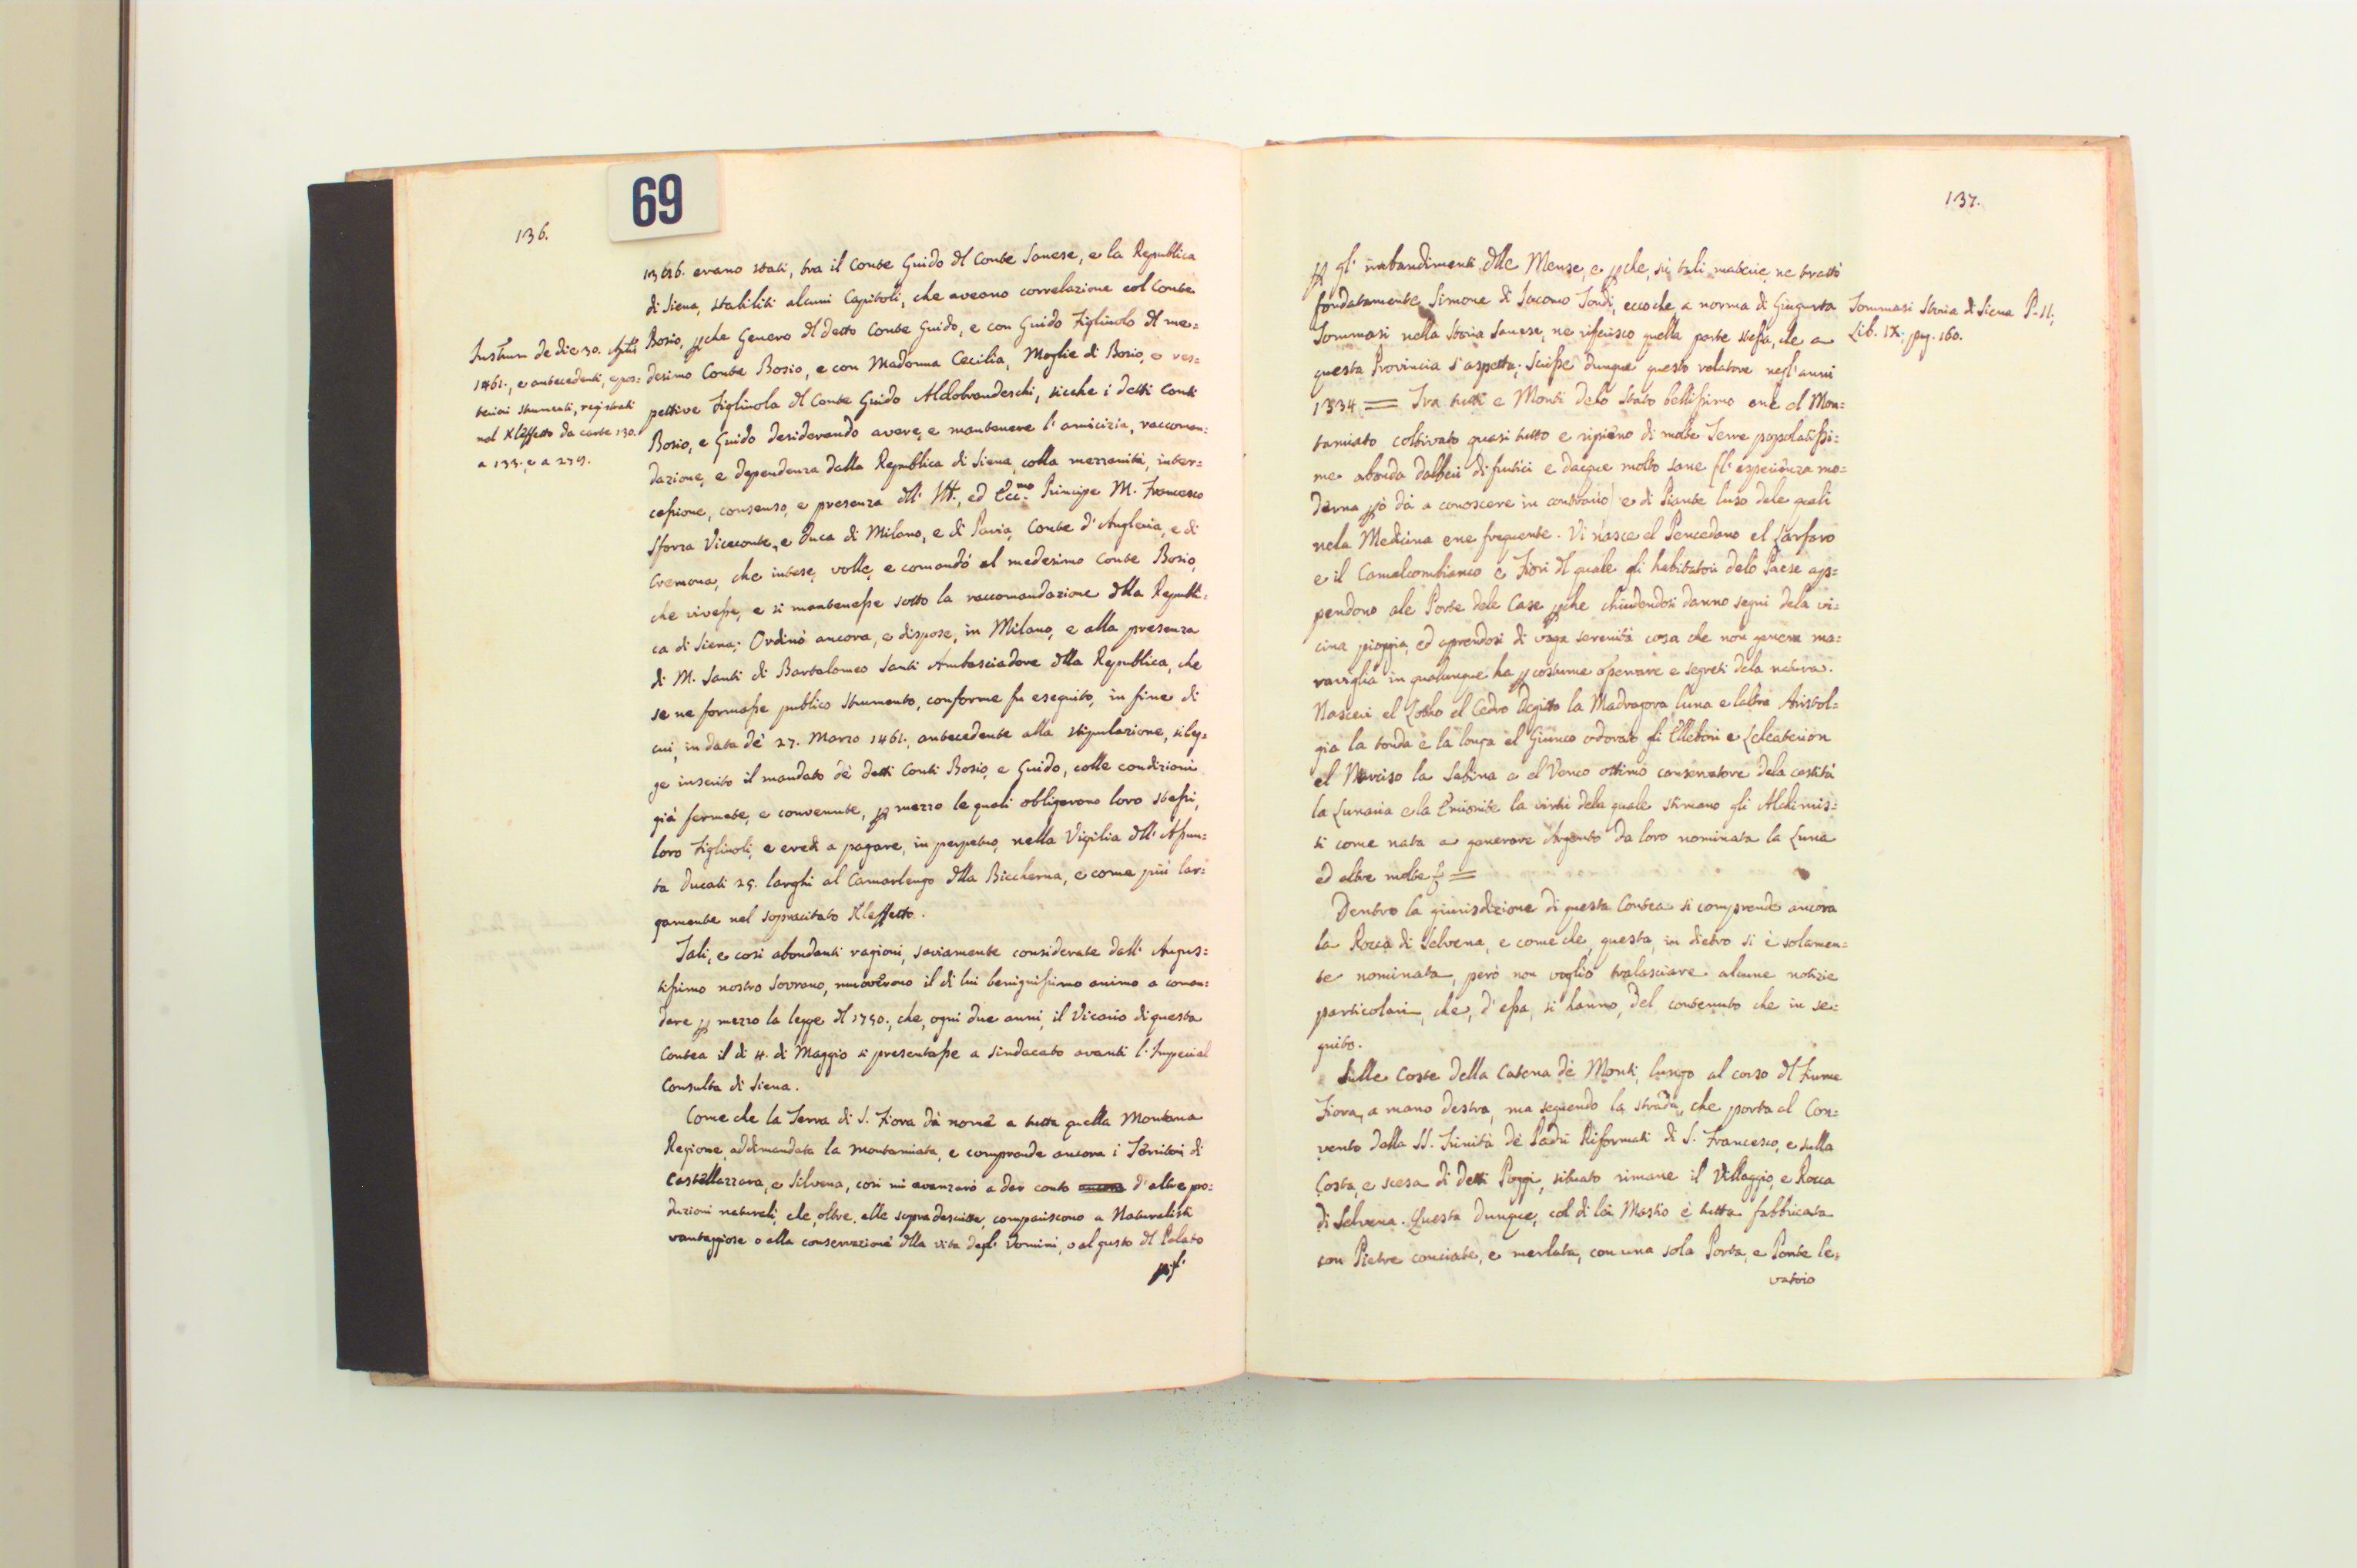 69
136.
13616. erano stati, tra il Conte Guido dl Conte Sanese, e la Republica
di Siena, stabiliti alcuni Capitoli, che aveano correlazione col Conte
Bosio, pche Genero dl detto Conte Guido, e con Guido Figliuolo dl me=
desimo Conte Bosio, e con Madonna Cecilia, Moglie di Bosio, e res=
pettive Figliuola dl Conte Guido Aldobrandeschi, sicche i detti Conti
Bosio, e Guido desiderando avere, e mantenere l'amicizia, raccoman=
dazione, e dependenza dalla Republica di Siena, colla mezzanità, inter=
cessione, consenso, e presenza dll' Ill., ed Ecc.mo Principe M. Francesco
Sforza Viceconte, e Duca di Milano, e di Pavia, Conte d'Angleria, e di
Cremona, che intese, volle, e comandò al medesimo Conte Bosio,
che vivesse, e si mantenesse sotto la raccomandazione dlla Republi=
ca di Siena; Ordinò ancora, e dispose, in Milano, e alla presenza
di M. Santi di Bartolomeo Santi Ambasciadore dlla Republica, che
se ne formasse publico Strumento, conforme fu eseguito, in fine di
cui, in data de' 27. Marzo 1461., antecedente alla stipulazione, si leg=
ge inserito il mandato de' detti Conti Bosio, e Guido, colle condizioni
già fermate, e convenute, p mezzo le quali obligarono loro stessi,
loro Figliuoli, e eredi a pagare, in perpetuo, nella Vigilia dll' Assun=
ta Ducati 25. larghi al Camarlengo dlla Biccherna, e come più lar=
gamente nel sopracitato Kleffetto.
Tali, e così abondanti ragioni, saviamente considerate dall' Augus=
tissimo nostro Sovrano, muoverono il di lui benignissimo animo a coman=
dare p mezzo la legge dl 1750., che, ogni due anni, il Vicario di questa
Contea il dì 4. di Maggio si presentasse a sindacato avanti l'Imperial
Consulta di Siena.
Come che la Terra di S. Fiora dà nome a tutta quella Montana
Regione, addimandata la Montamiata, e comprende ancora i Territori di
Castellazzara, e Silvena, così mi avanzarò a dar conto d'altre pro=
duzioni naturali, che, oltre alle sopra descritte, compariscono a Naturalisti
vantaggiose o alla conservazione dlla vita degl' Uomini, o al gusto dl Palato
p gl'
Instrum de die 30.
1461., e antecedenti, e pos=
teriori strumenti, registrati
nel Kleffetto da carte 130.
a 133. e a 279.
137.
p gl' imbandimenti dlle Mense, e pche, su tali materie, ne trattò
fondatamente Simone di Iacomo Tondi, eccoche, a norma di Giugurta
Tommasi nella Storia Sanese, ne riferisco quella parte stessa, che a
questa Provincia s'aspetta; Scrisse dunque questo relatore negl' anni
1334 = Tra tutti e Monti delo Stato bellissimo ene el Mon=
tamiato coltivato quasi tutto e ripieno di molte Terre popolatissi=
me abonda dalberi di frutici e dacque molto sane (l'esperienza mo=
derna pò dà a conoscere in contrario) e di Piante luso dele quali
nela Medicina ene frequente. Vi nasce el Peucedano el Carfaro
e il Camalcombianco e Fiori dl quale gli habitatori delo Paese ap=
pendono ale Porte dele Case pche chiudendosi danno segni dela vi=
cina pioggia, ed aprendosi di vaga serenità cosa che non genera ma=
raviglia in qualunque ha p costume osservare e segreti dela natura.
Nascevi el el Cedro la Madragora luna e laltra Aristol=
gia la tonda e la longa el Giunco odorato gli Ellebori e
el Narciso la Sabina e el Venco ottimo conservatore dela castità
la Lunaria e la la virtù dela quale stimano gli Alchimis=
ti come nata a generare Argento da loro nominata la Luna
ed altre molte =
Dentro la giurisdizione di questa Contea si comprende ancora
la Rocca di Selvena, e come che, questa, in dietro si è solamen=
te nominata, però non voglio tralasciare alcune notizie
particolari, che, d'essa, si hanno, del contenuto che in se=
guito.
Sulle Coste della Catena de' Monti, lungo al corso dl Fiume
Fiora, a mano destra, ma seguendo la strada, che porta al Con=
vento della SS. Trinità de' Padri Riformati di S. Francesco, e sulla
Costa, e scesa di detti Poggi, situato rimane il Villaggio, e Rocca
di Selvena. Questa dunque, col di lei Mastio è tutta fabbricata
con Pietre conciate, e merlata, con una sola Porta, e Ponte le=
vatoio
Tommasi Storia di Siena P. II.
Lib. IX. pag. 160.